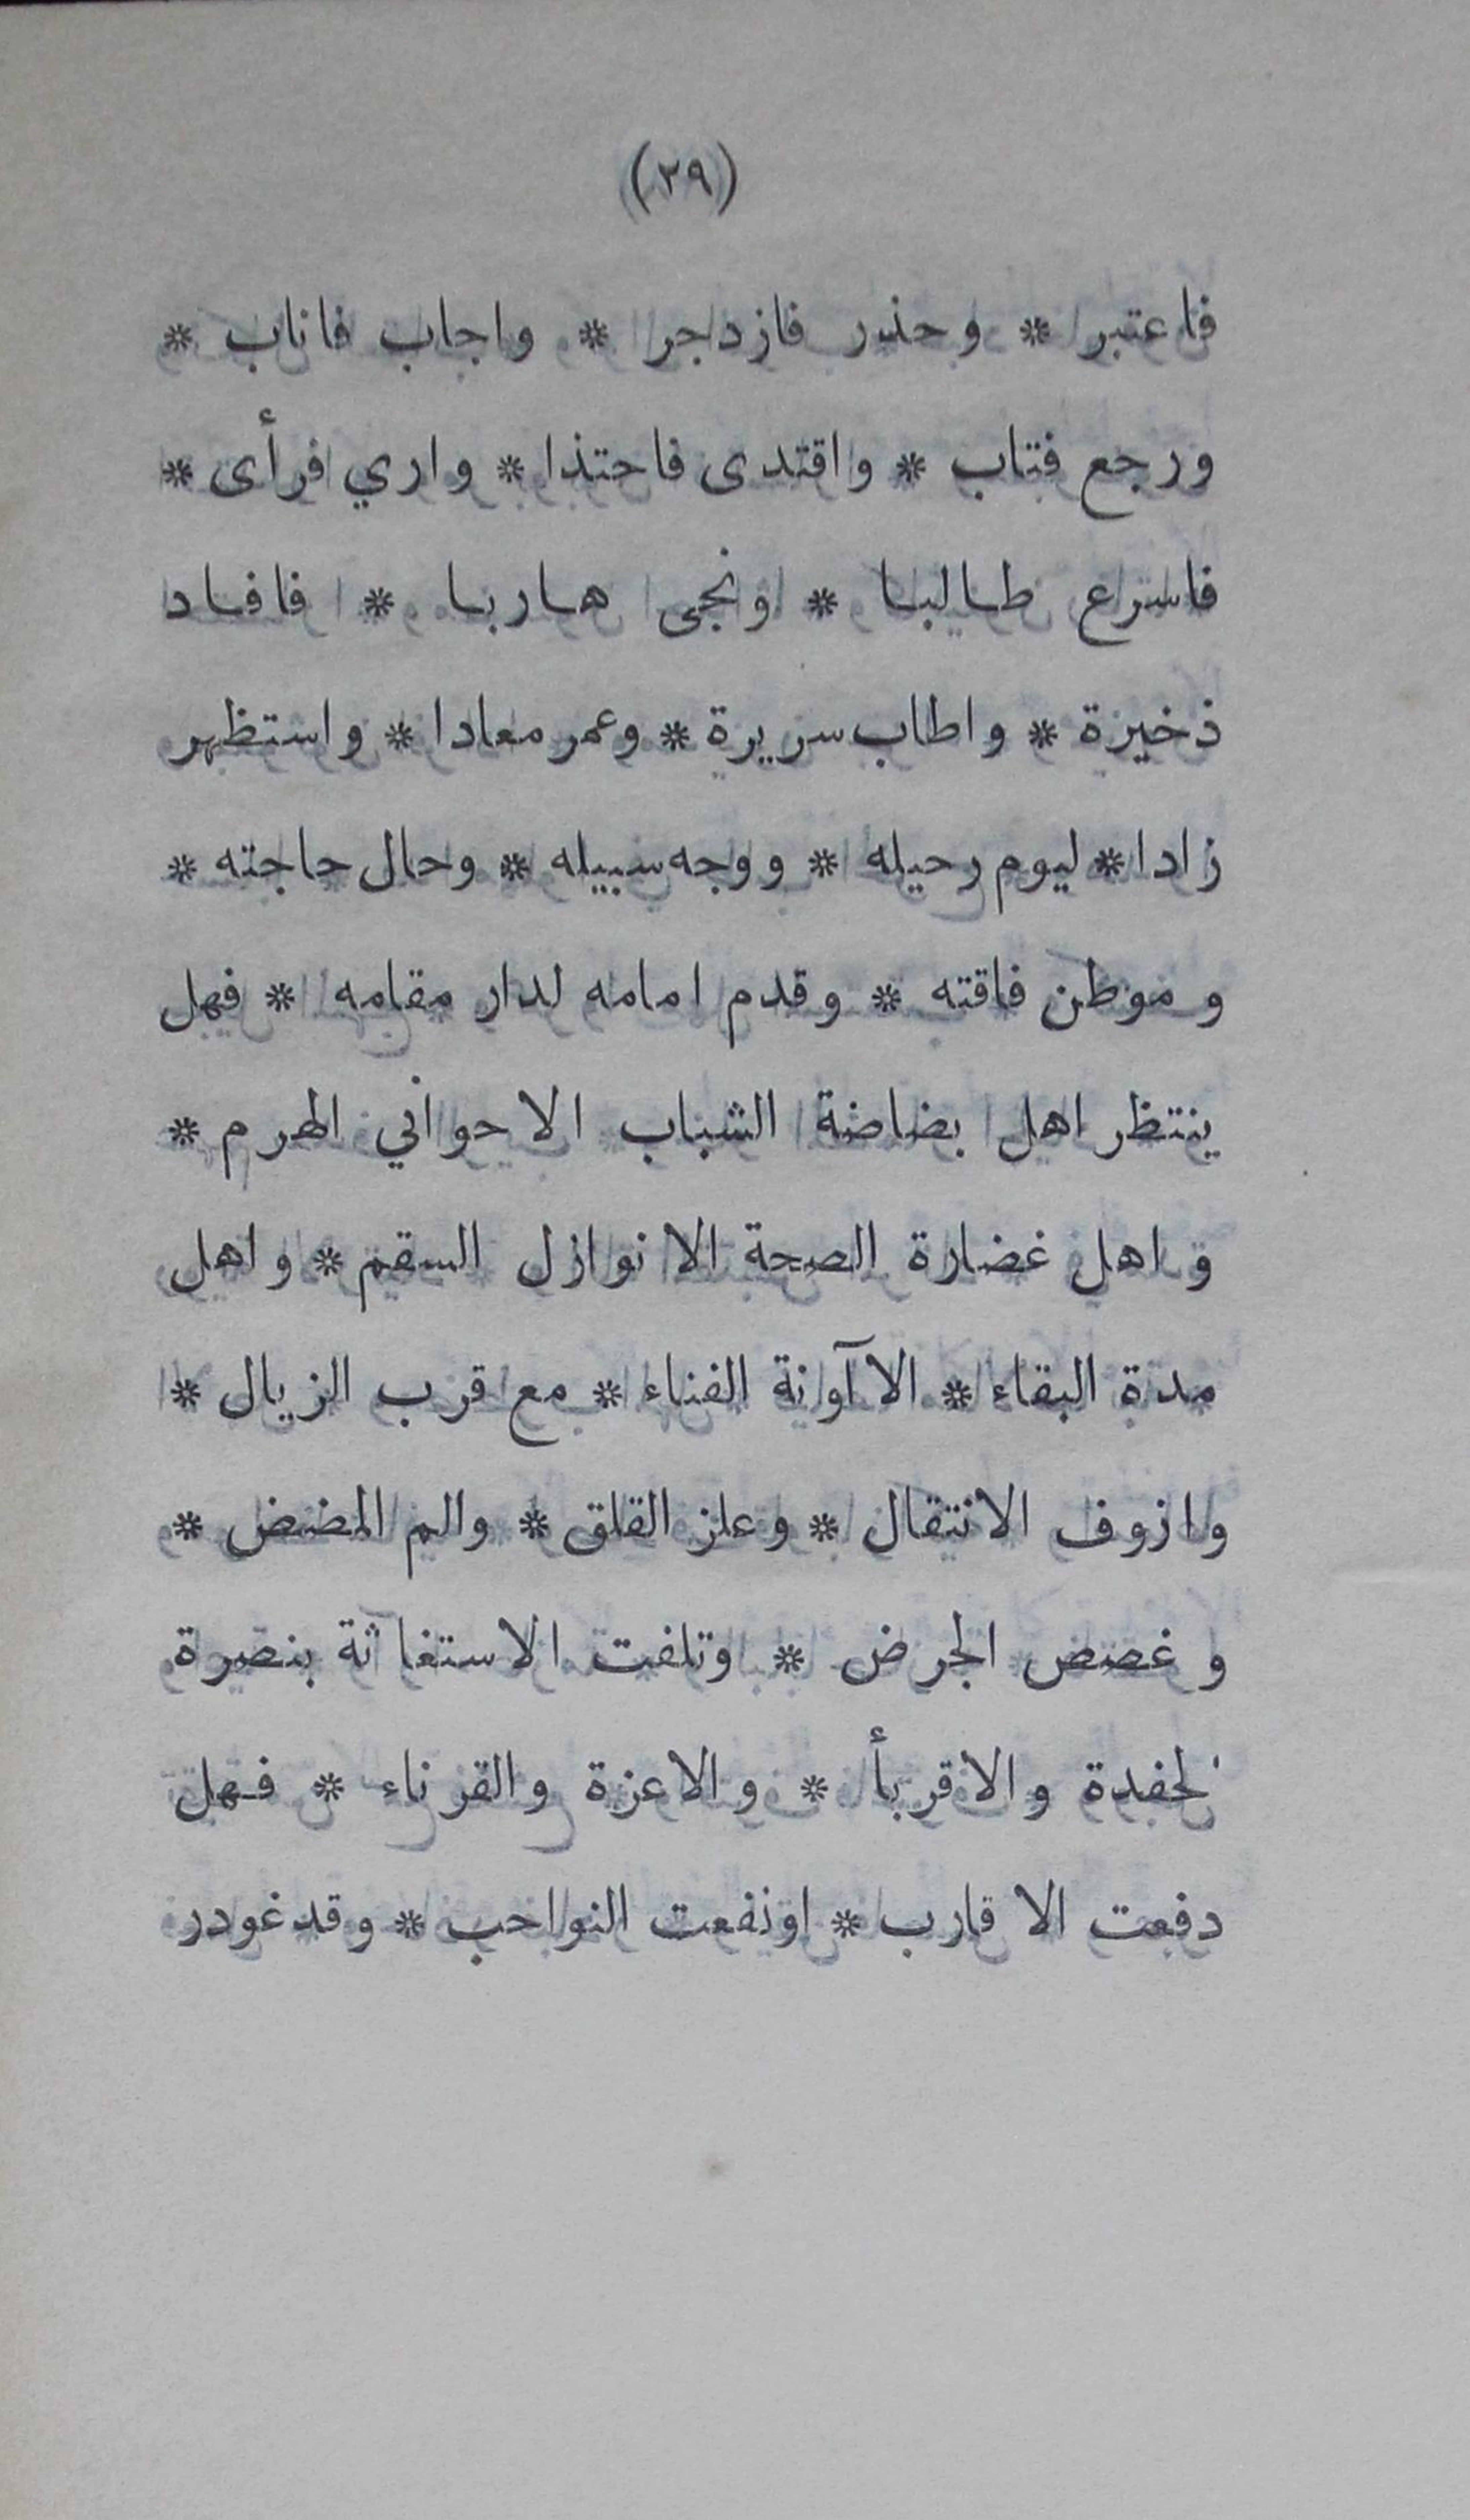 (٢٩)
فاعتبر * وحذر فازدجر * واجاب فاناب *
ورجع فتاب * واقتدى فاحتذا * واري فرأى *
فاسرع طالبا * ونجى هاربا * فافاد
ذخيرة * واطاب سريرة * وعمر معادا * واستظهر
زادا * ليوم رحيله * ووجه سبيله * وحال حاجته *
وموطن فاقته * وقدم امامه لدار مقامه * فهل
ينتظر اهل بضاضة الشباب الا حواني الهرم *
واهل غضارة الصحة الا نوازل السقم * واهل
مدة البقاء * الا آونة الفناء * مع قرب الزيال *
وازوف الانتقال * وعلز القلق * والم المضض *
وغصص الجرض * وتلفت الاستغاثة بنصرة
لحفدة والاقربأ * والاعزة والقرناء * فهل
دفعت الاقارب * اونفعت النواحب * وقد غودر